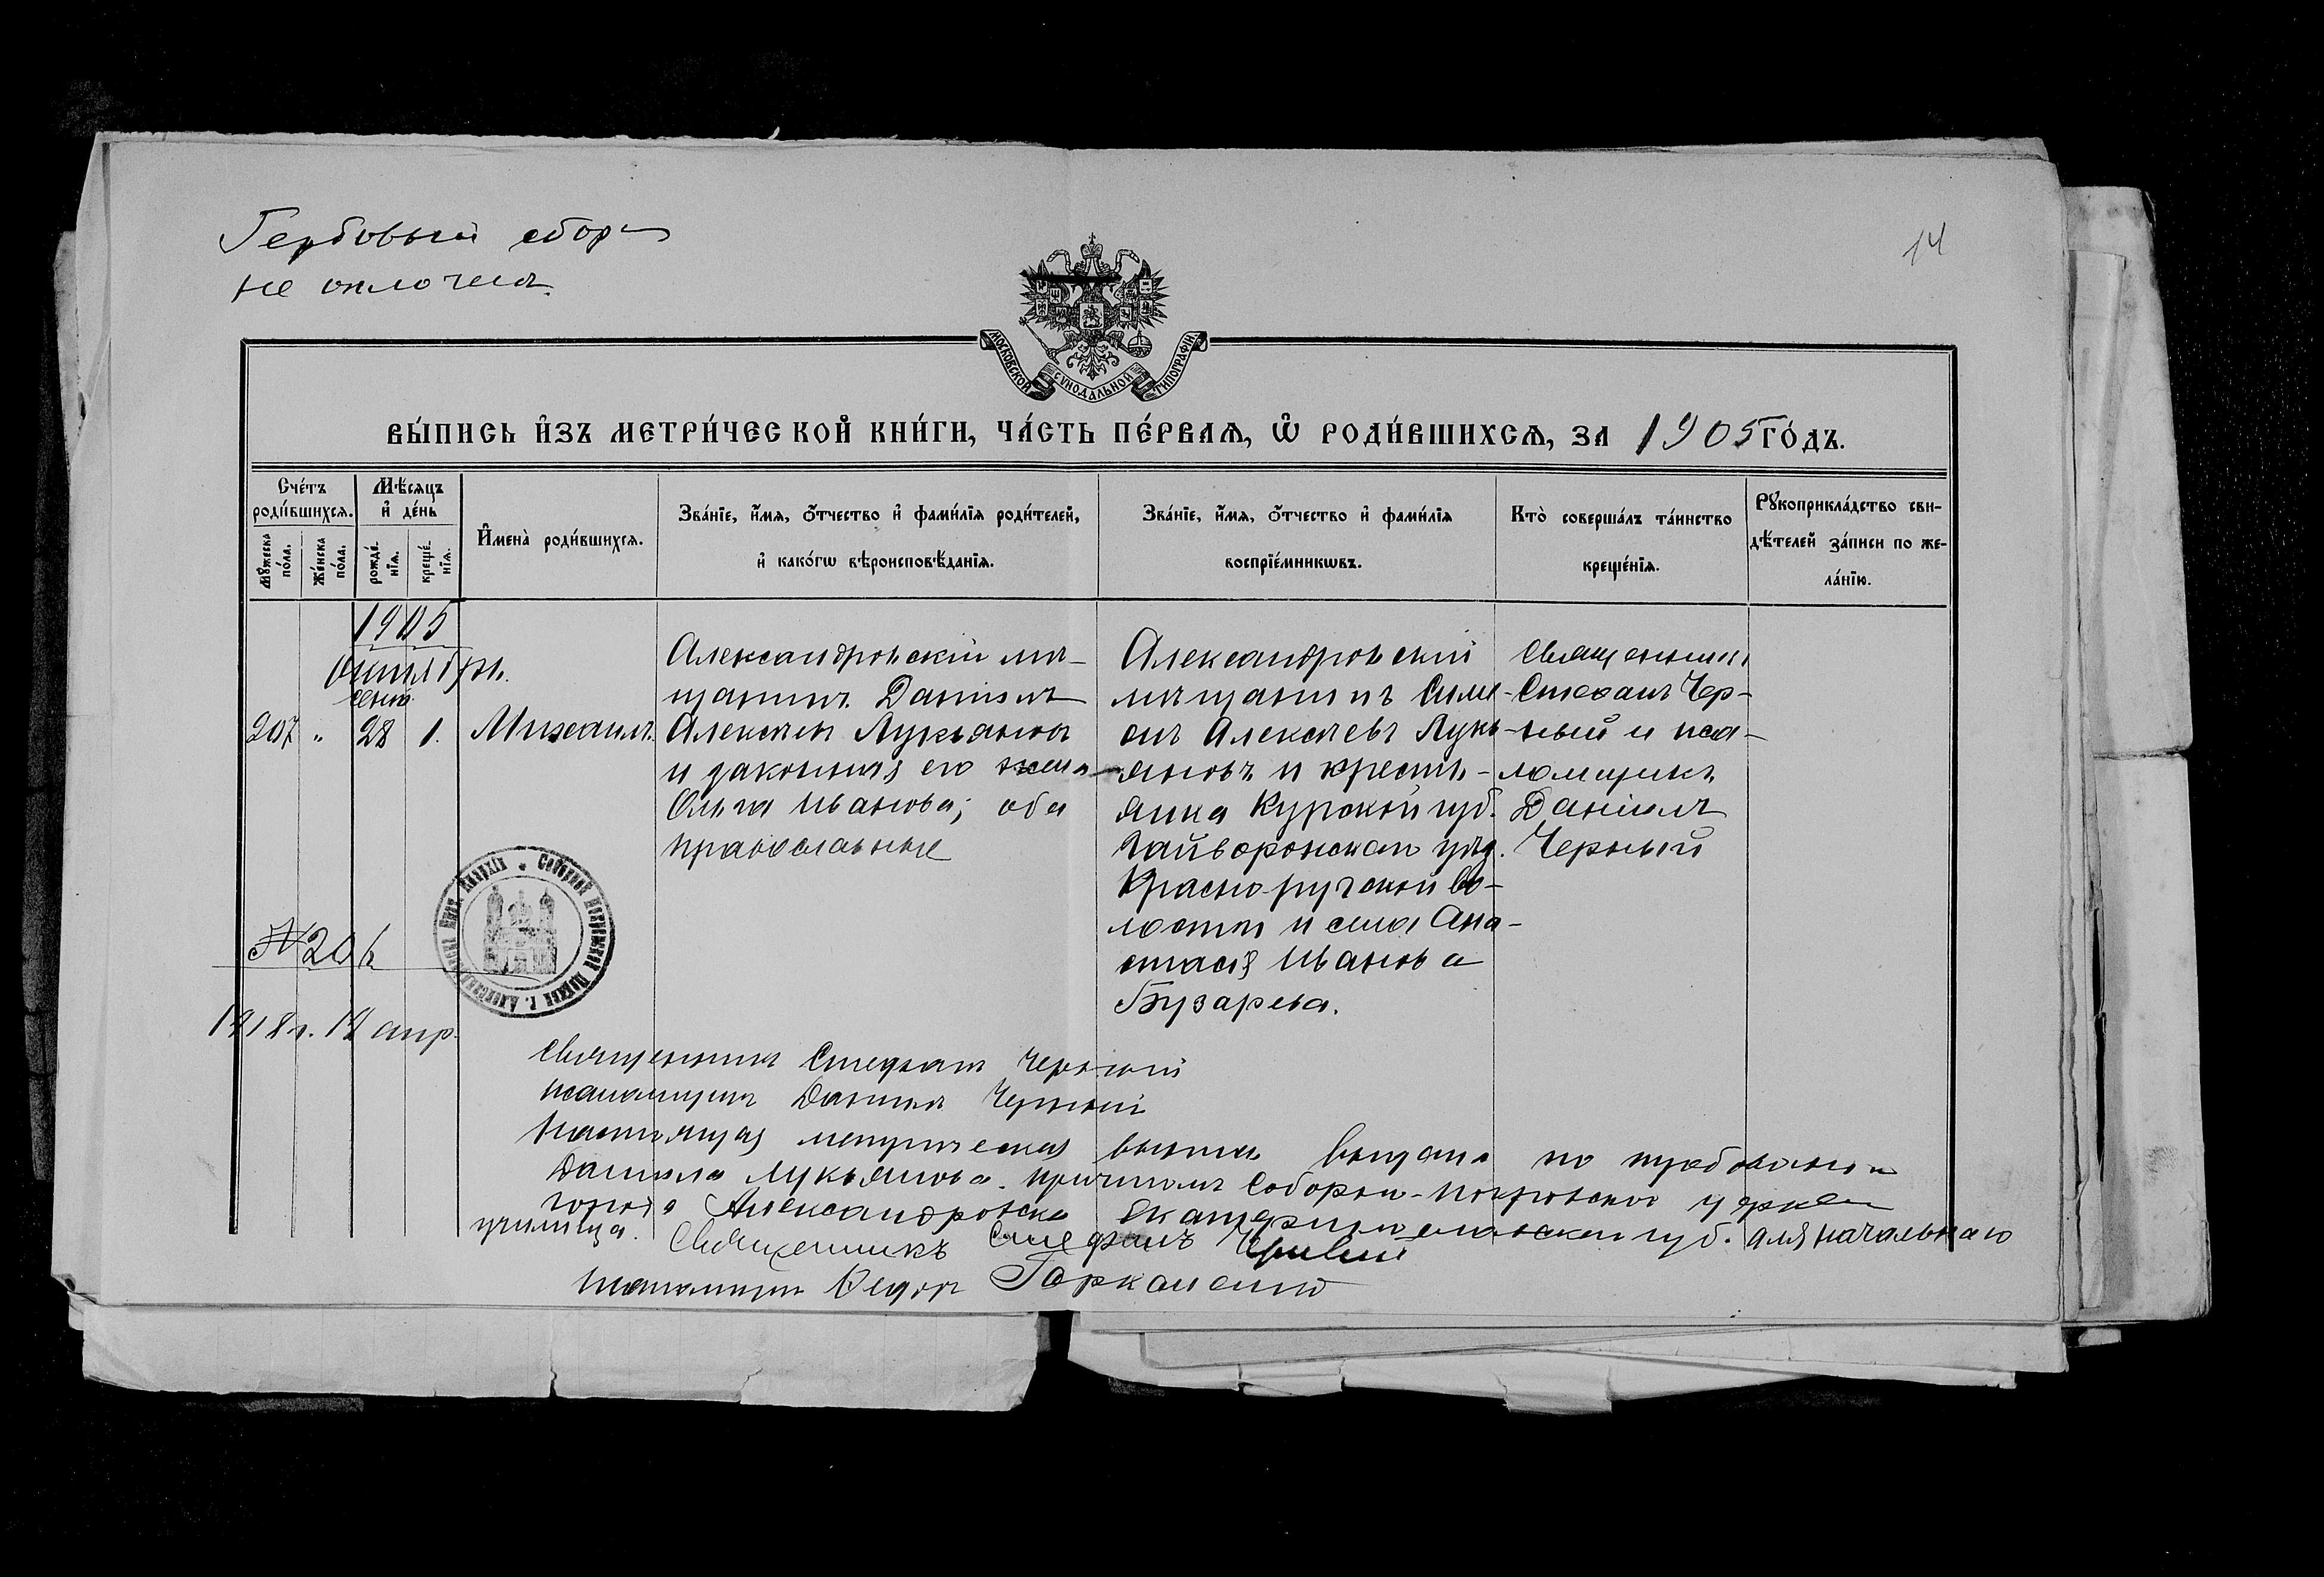 Гербовый сборъ
не оплоченъ.
14
МОСКОВСКОЙ СѴНОДАЛЬНОЙ ТИПОГРАФІИ
ВЫ́ПИСЬ И҆ЗЪ МЕТРИ́ЧЕСКОЙ КНИ́ГИ, ЧА́СТЬ ПЕ́РВАѦ, Ѡ҆ РОДИ́ВШИХСѦ, ЗА 1905 ГО́ДЪ.
Сче́тъ роди́вшихсѧ.
Мꙋ́жеска по́ла.
Же́нска по́ла.
Мѣ́сѧцъ и҆ де́нь
рожде́нїѧ.
креще́нїѧ.
И҆мена̀ роди́вшихсѧ.
Зва́нїе, и҆́мѧ, ѻ҆́тчество и҆ фами́лїѧ роди́телей,
и҆ како́гѡ вѣроисповѣ́данїѧ.
Зва́нїе, и҆́мѧ, ѻ҆́тчество и҆ фами́лїѧ
воспрїе́мникѡвъ.
Кто̀ соверша́лъ та́инство
креще́нїѧ.
Рꙋкоприкла́дство сви-
дѣ́телей за́писи по же-
ла́нїю.
1905
Октября.
сент.
207 " 28 1. Михаилъ.
Александровскій мѣ-
щанинъ Даніилъ
Алексѣевъ Лукьяновъ
и законная его жена
Ольга Иванова; оба
православные
Александровскій
мѣщанинъ Симе-
онъ Алексѣевъ Лукь-
яновъ и кресть-
янка Курской губ.
Гайворонскаго уѣзд.
Красно-ругской во-
лости и села Ана-
стасія Иванова
Бузарева.
Священникъ
Стефанъ Чер-
ный и пса-
ломщикъ
Даніилъ
Черный
№ 206
1918 г. 12 апр.
Священникъ Стефанъ Черный
псаломщикъ Даніилъ Черный
Настоящая метрическая выпись выдана по требованію
Даніила Лукьянова причтомъ Соборно-Покровской церкви
города Александровска Екатеринославской губ. для начальнаго
училища. Священникъ Стефанъ Черный
Псаломщикъ Федоръ